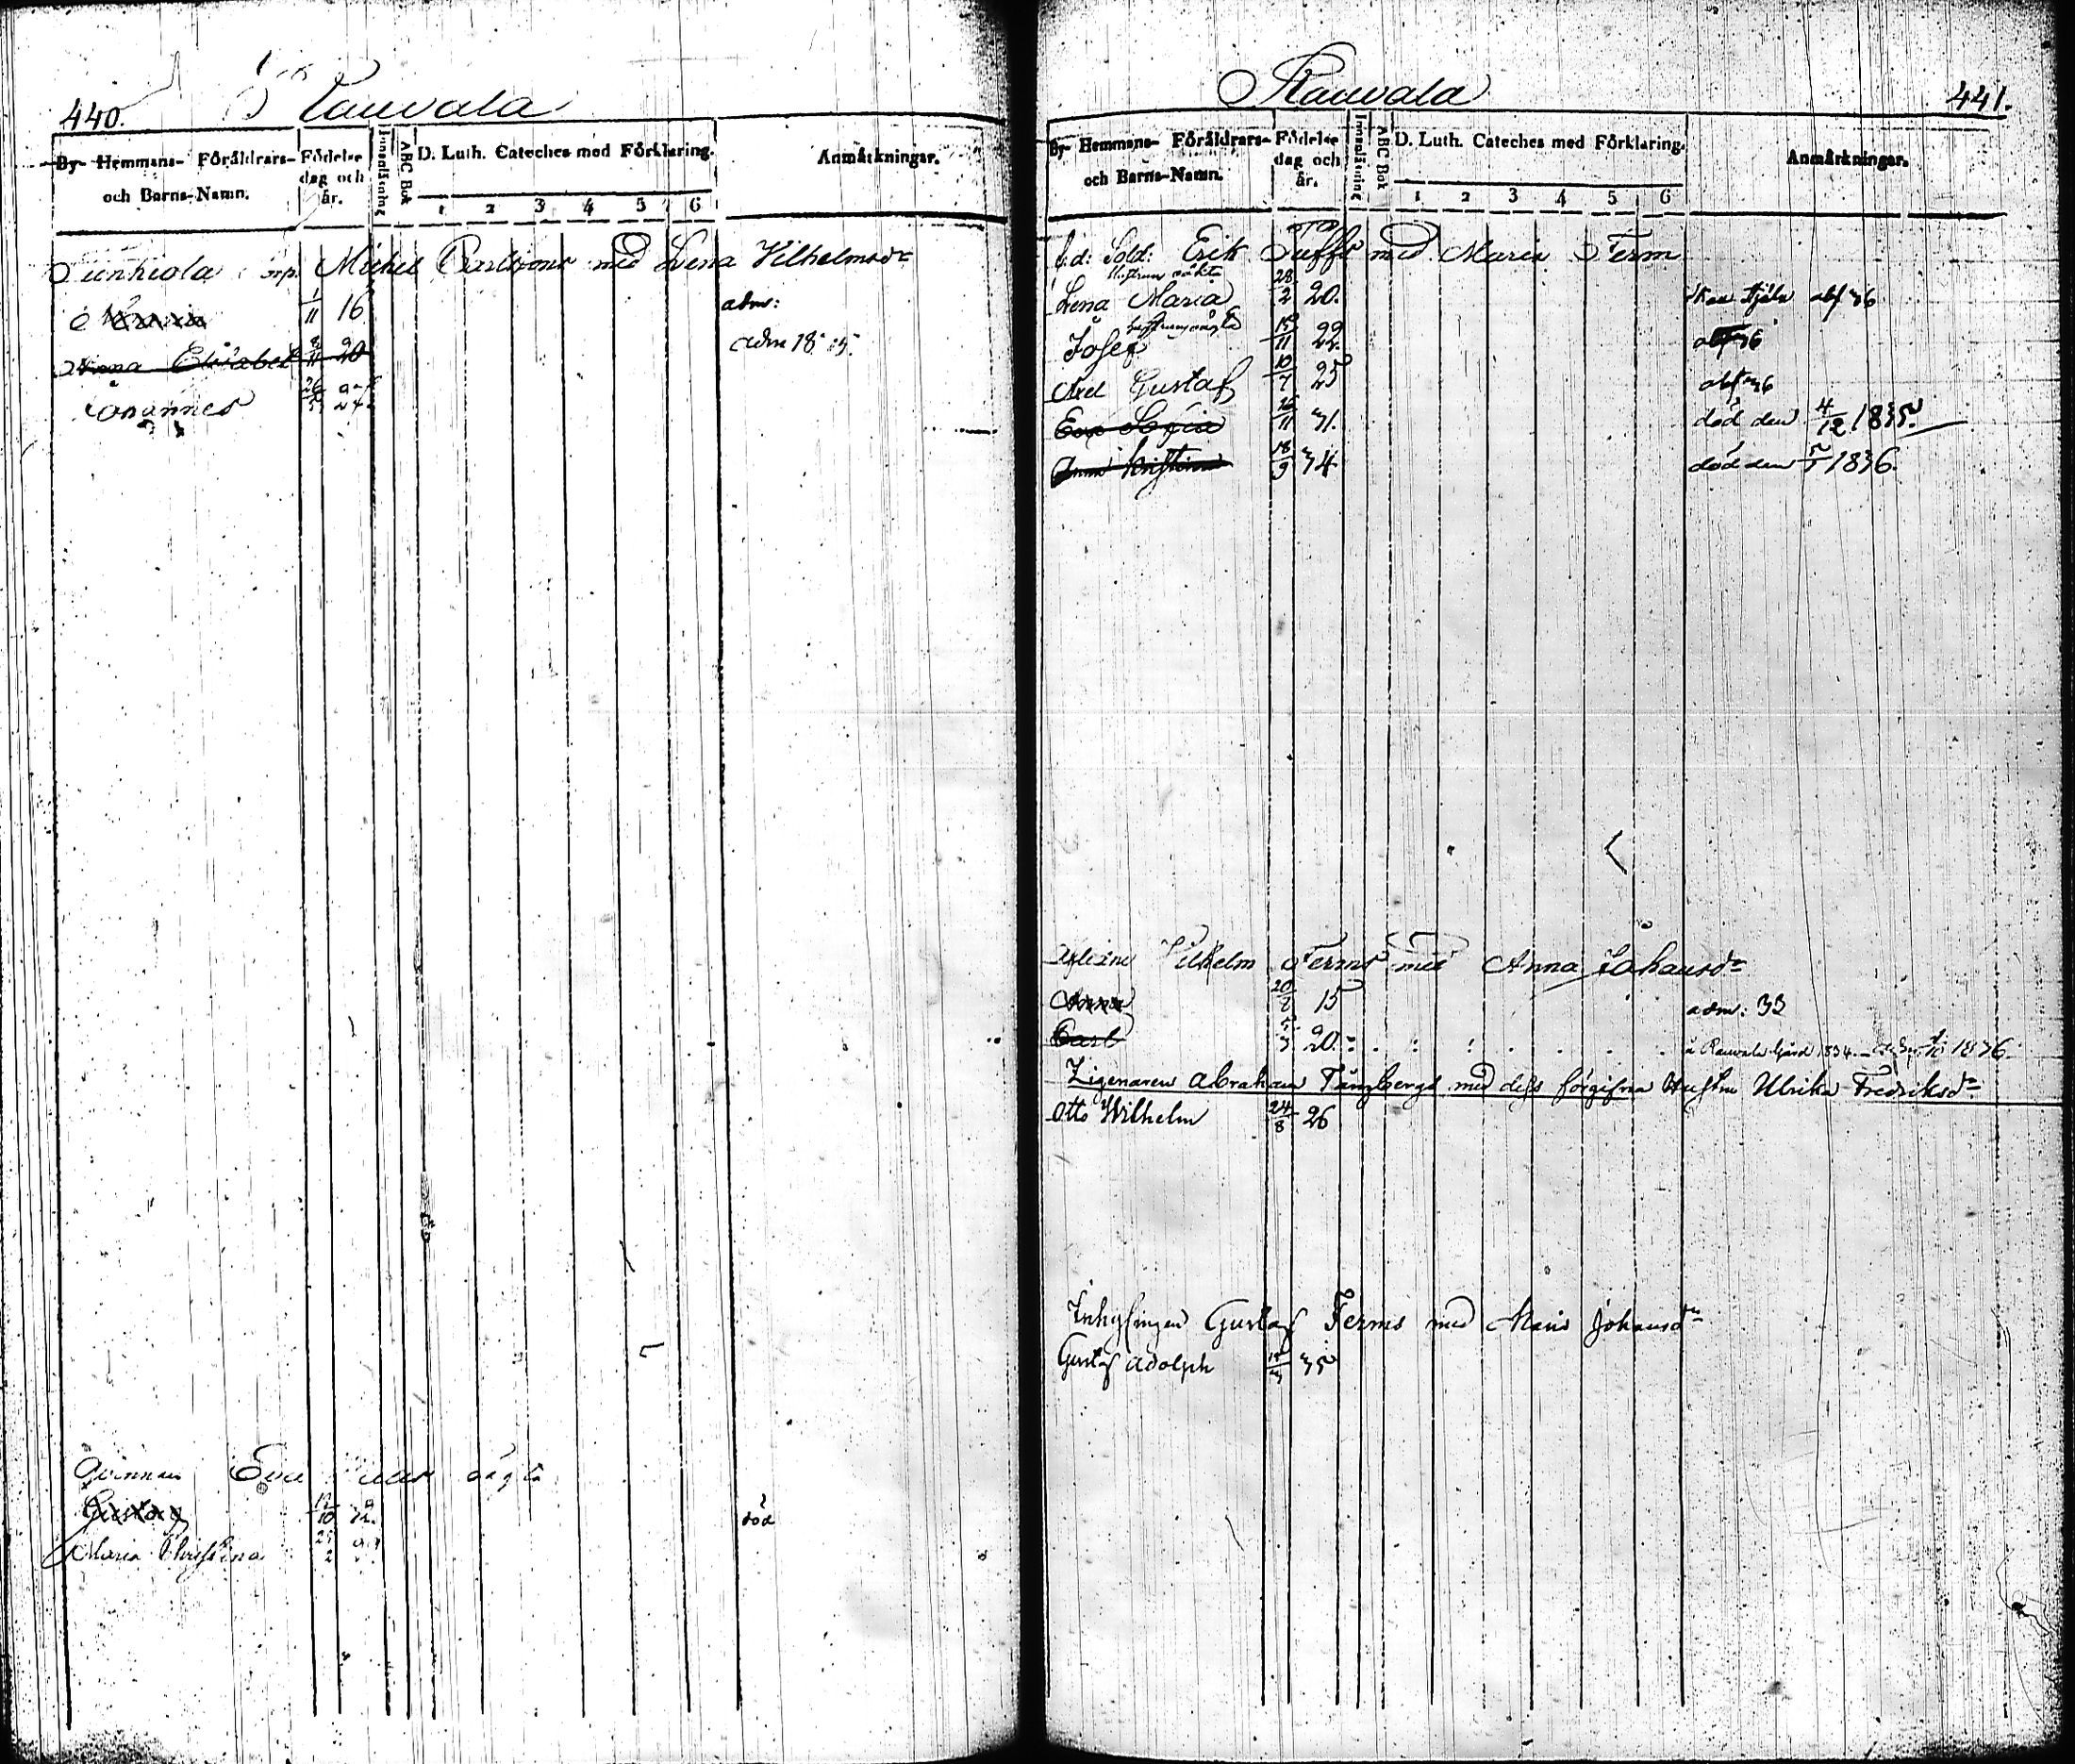 440.
Rauvala
By- Hemmans- Föräldrars- och Barns-Namn.
Födelse dag och år.
Innanläsning
ABC Bok
D. Luth. Cateches med Förklaring.
1 2 3 4 5 6
Anmärkningar.
Michel Carlssons med Lena Vilhelmsdr
1/11 16 adm:
Anna Elisabet 8/11 20 adm 18
Johannes 26/5 24.
Qvinnan Eva oägta
Gustaf 10 32. död
Maria Christina 25/2
Rauvala
441.
By- Hemmans- Föräldrars- och Barns-Namn.
Födelse dag och år.
Innanläsning
ABC Bok
D. Luth. Cateches med Förklaring.
1 2 3 4 5 6
Anmärkningar.
f.d: Sold: Erik Tuffs med Maria Ferm
Hustruns oäkta
Lena Maria 28/2 20. abf 36
Josef 15/11 22. abf 36
Axel Gustaf 10/7 25 abf 36
Eva 26/11 31. död den 4/12 1835.
Anna Kristina 18/9 34 död den 1836.
Vilhelm Ferms med Anna Johansdr
Anna 20/2 15 adm: 33
Carl 5/3 20. å Rauvala Gård 1834. 1836
Zigenaren Abraham Tänzbergs med dess förgifna Hustru Ulrika Fredriksdr
Otto Wilhelm 24/8 26
Inhysingen Gustaf Ferms med Maria Johansdr
Gustaf Adolph 35